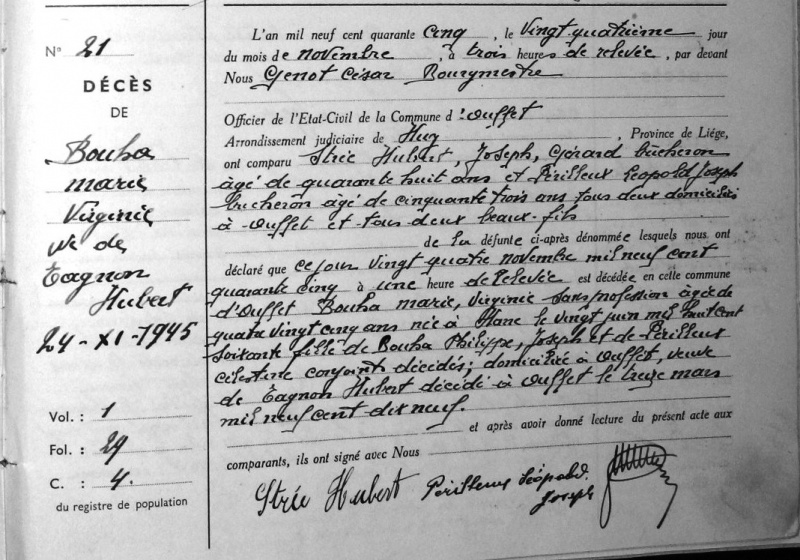 N° 21
DÉCÈS
DE
Bouha
marie
Virginie
ve de
Tagnon
Hubert
24-XI-1945
Vol. : 1
Fol. : 29
C. : 4.
du registre de population
L'an mil neuf cent quarante Cinq, le Vingt-quatrième jour
du mois de novembre, à trois heures de relevée, par devant
Nous Genot César Bourgmestre
Officier de l'Etat-Civil de la Commune d'Ouffet
Arrondissement judiciaire de Huy, Province de Liége,
ont comparu Strée Hubert, Joseph, Gérard bûcheron
âgé de quarante huit ans et Périlleux Léopold Joseph
bûcheron âgé de cinquante trois ans tous deux domiciliés
à Ouffet et tous deux beaux-fils
de la défunte ci-après dénommée lesquels nous ont
déclaré que ce jour vingt quatre novembre mil neuf cent
quarante cinq à une heure de relevée est décédée en cette commune
d'Ouffet Bouha marie, Virginie sans profession âgée de
quatre vingt cinq ans née à le vingt juin mil huit cent
soixante fille de Bouha Philippe, Joseph et de Périlleux
Célestine conjoints décédés; domiciliée à Ouffet, veuve
de Tagnon Hubert décédé à Ouffet le treize mars
mil neuf cent dix neuf.
et après avoir donné lecture du présent acte aux
comparants, ils ont signé avec Nous
Strée Hubert Périlleux Léopold.
Joseph